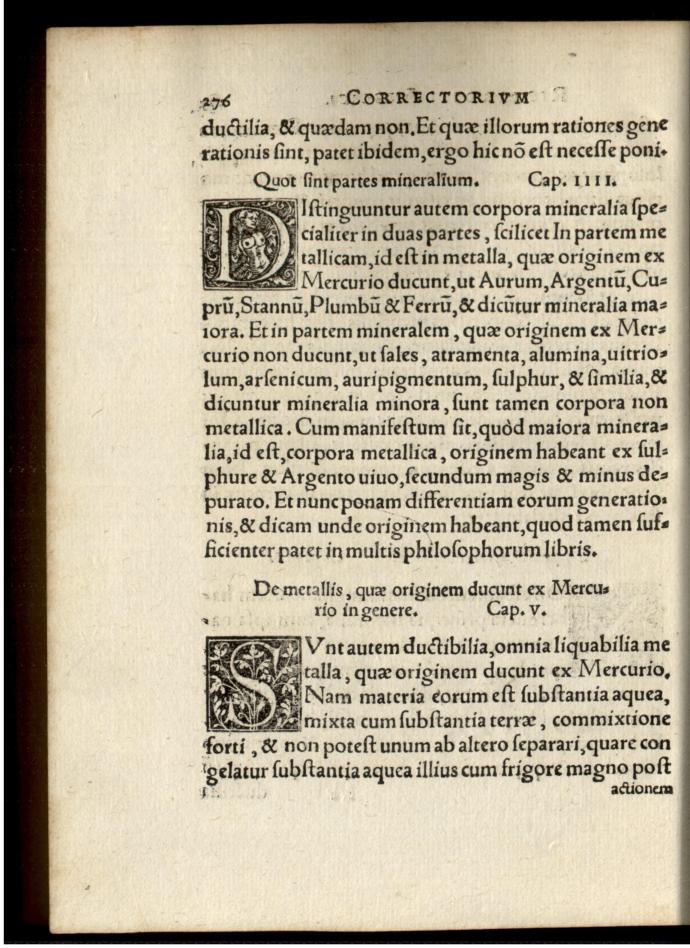 276 CORRECTORIVM
ductilia, & quædam non. Et quæ illorum rationes gene
rationis sint, patet ibidem, ergo hic nō est necesse poni.
Quot sint partes mineralium. Cap. IIII.
DIstinguuntur autem corpora mineralia spe=
cialiter in duas partes, scilicet In partem me
tallicam, id est in metalla, quæ originem ex
Mercurio ducunt, ut Aurum, Argentū, Cu=
prū, Stannū, Plumbū & Ferrū, & dicūtur mineralia ma=
iora. Et in partem mineralem, quæ originem ex Mer=
curio non ducunt, ut sales, atramenta, alumina, uitrio=
lum, arsenicum, auripigmentum, sulphur, & similia, &
dicuntur mineralia minora, sunt tamen corpora non
metallica. Cum manifestum sit, quòd maiora minera=
lia, id est, corpora metallica, originem habeant ex sul=
phure & Argento uiuo, secundum magis & minus de=
purato. Et nunc ponam differentiam eorum generatio=
nis, & dicam unde originem habeant, quod tamen suf=
ficienter patet in multis philosophorum libris.
De metallis, quæ originem ducunt ex Mercu=
rio in genere. Cap. V.
SVnt autem ductibilia, omnia liquabilia me
talla, quæ originem ducunt ex Mercurio.
Nam materia eorum est substantia aquea,
mixta cum substantia terræ, commixtione
forti, & non potest unum ab altero separari, quare con
gelatur substantia aquea illius cum frigore magno post
actionem